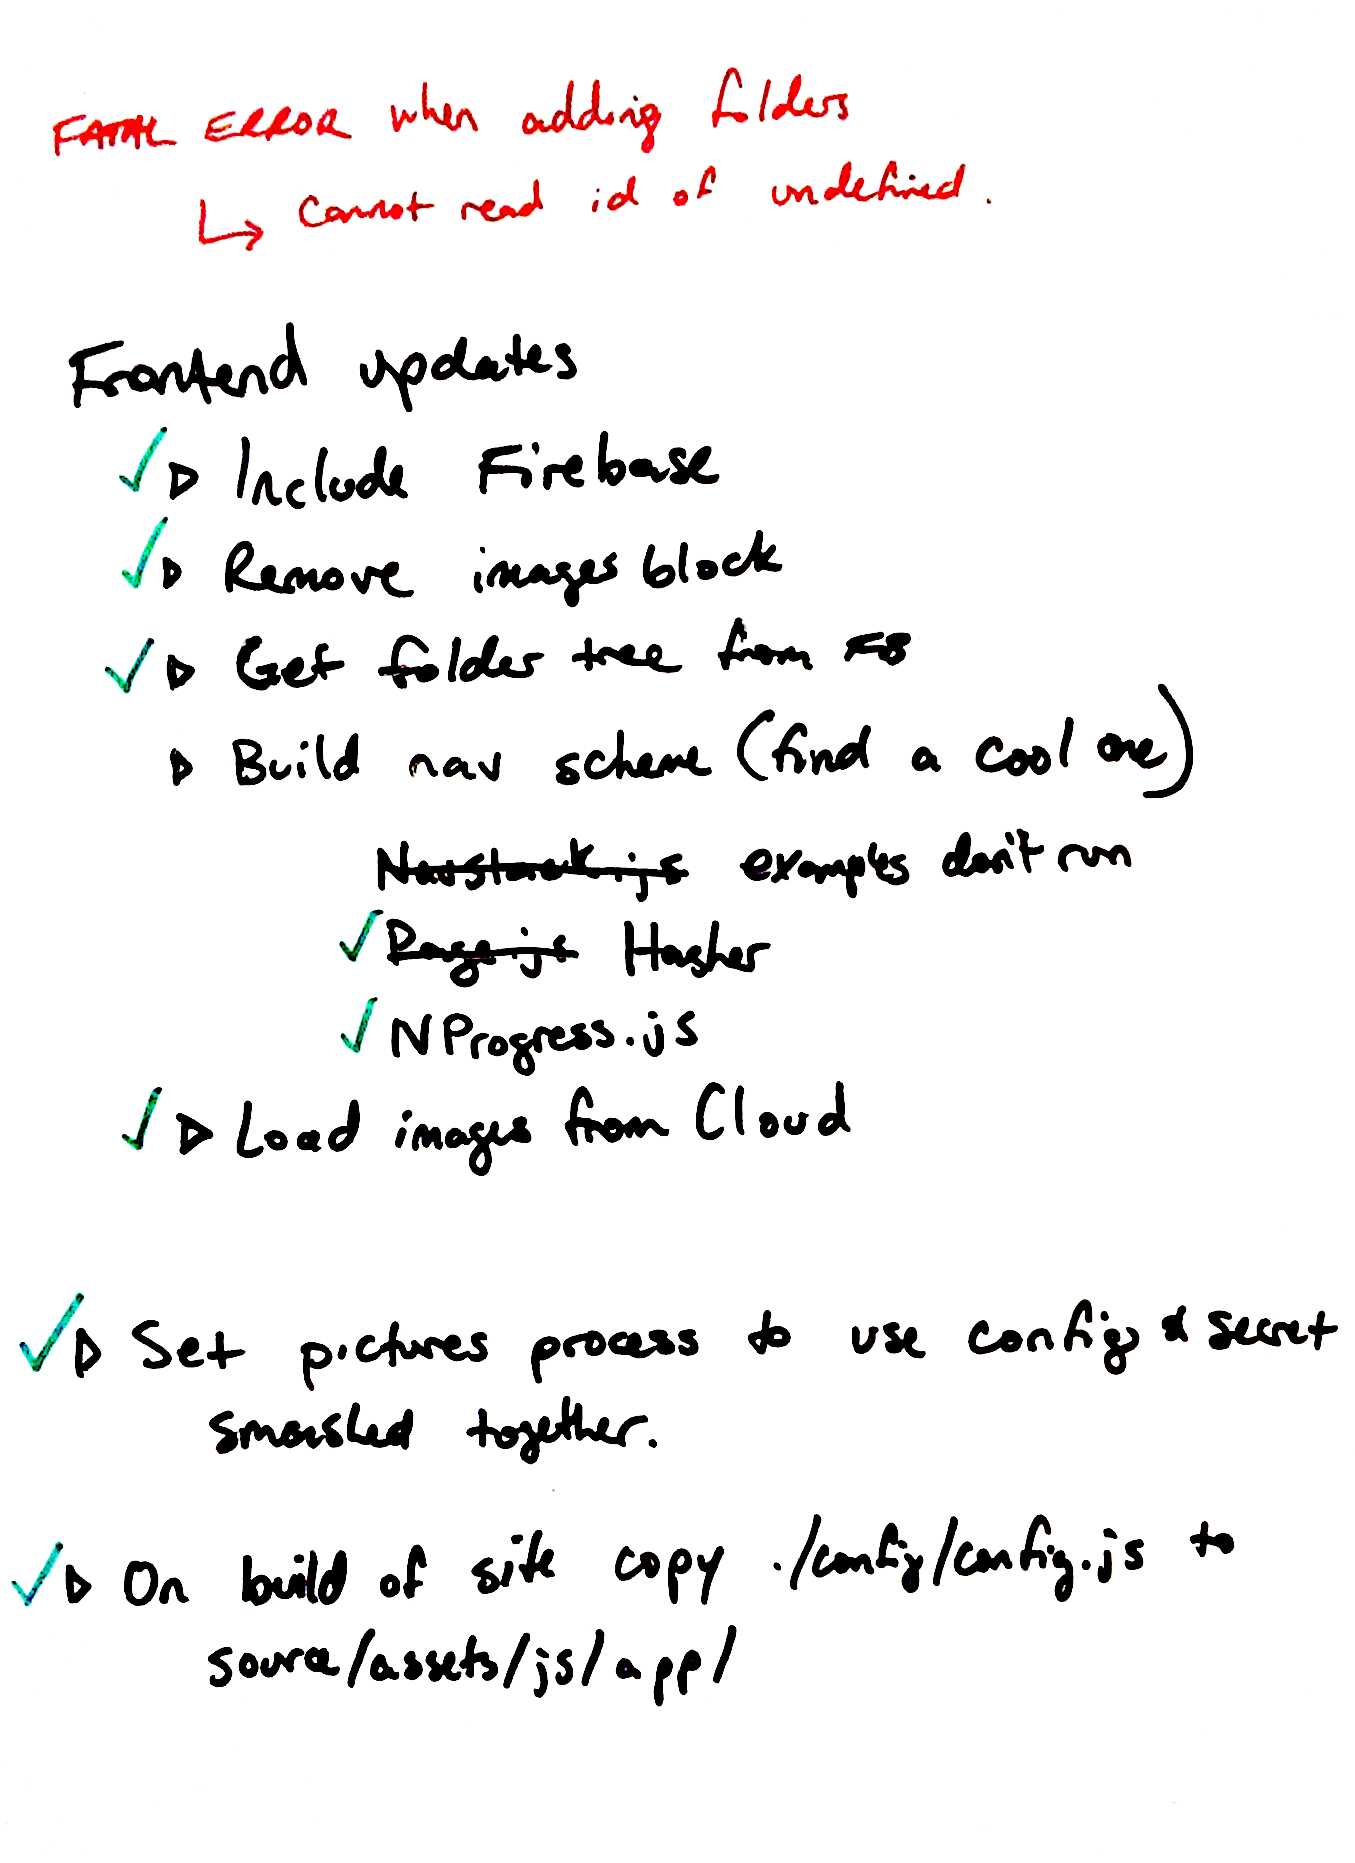 FATAL ERROR when adding folders
↳ Cannot read id of undefined.
Frontend updates
✓ ▷ Include Firebase
✓ ▷ Remove images block
✓ ▷ Get folder tree from FB
▷ Build nav scheme (find a cool one)
Navstack.js examples don't run
✓ Page.js Hasher
✓ NProgress.js
✓ ▷ Load images from Cloud
✓ ▷ Set pictures process to use config & secret
smashed together.
✓ ▷ On build of site copy ./config/config.js to
source/assets/js/app/